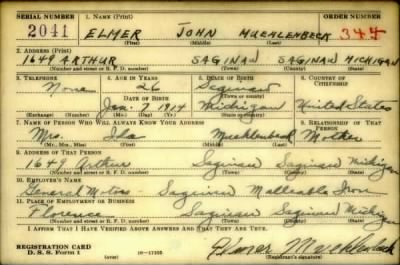 SERIAL NUMBER 1. NAME (Print) ORDER NUMBER
2041 ELMER JOHN MUEHLENBECK 344
(First) (Middle) (Last)
2. ADDRESS (Print)
1649 ARTHUR SAGINAW SAGINAW MICHIGAN
(Number and street or R. F. D. number) (Town) (County) (State)
3. TELEPHONE 4. AGE IN YEARS 5. PLACE OF BIRTH 6. COUNTRY OF CITIZENSHIP
None 26 Saginaw
DATE OF BIRTH (Town or county)
Jan. 7 1914 Michigan United States
(Exchange) (Number) (Mo.) (Day) (Yr.) (State or country)
7. NAME OF PERSON WHO WILL ALWAYS KNOW YOUR ADDRESS 8. RELATIONSHIP OF THAT PERSON
Mrs. Ida Muehlenbeck Mother
(Mr., Mrs., Miss) (First) (Middle) (Last)
9. ADDRESS OF THAT PERSON
1649 Arthur Saginaw Saginaw Michigan
(Number and street or R. F. D. number) (Town) (County) (State)
10. EMPLOYER'S NAME
General Motors Saginaw Malleable Iron
11. PLACE OF EMPLOYMENT OR BUSINESS
Florence Saginaw Saginaw Michigan
(Number and street or R. F. D. number) (Town) (County) (State)
I AFFIRM THAT I HAVE VERIFIED ABOVE ANSWERS AND THAT THEY ARE TRUE.
REGISTRATION CARD
D. S. S. Form 1 (over) 16—17105 Elmer Muehlenbeck
(Registrant's signature)